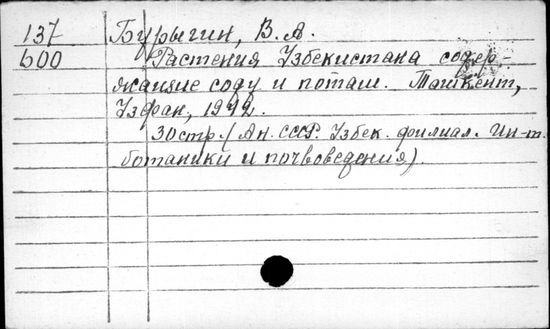 137 Бурыгин, В.А.
600 Растения Узбекистана содер-
жащие соду и поташ. Ташкент,
Узфан, 1942.
30стр. (Ан. СССР. Узбек. филиал. Ин-т
ботаники и почвоведения).